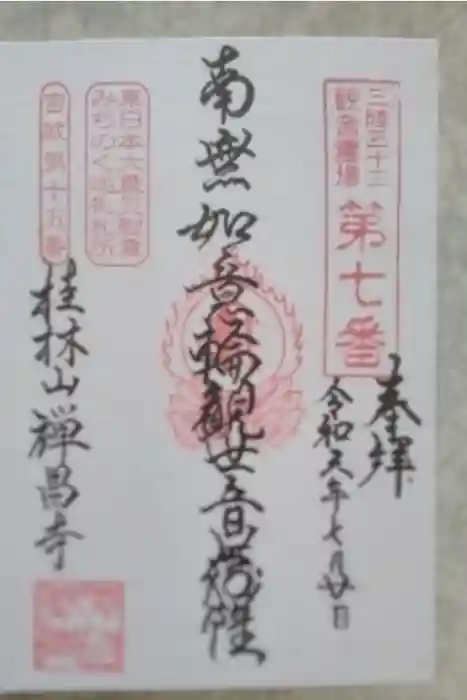 三陸三十三
観音霊場
第七番
奉拝
令和元年七月廿日
南無如意輪観世音菩薩
東日本大震災慰霊
みちのく巡礼札所
宮城第十五番
桂林山禅昌寺